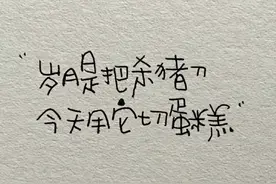 “岁月是把杀猪刀
今天用它切蛋糕”